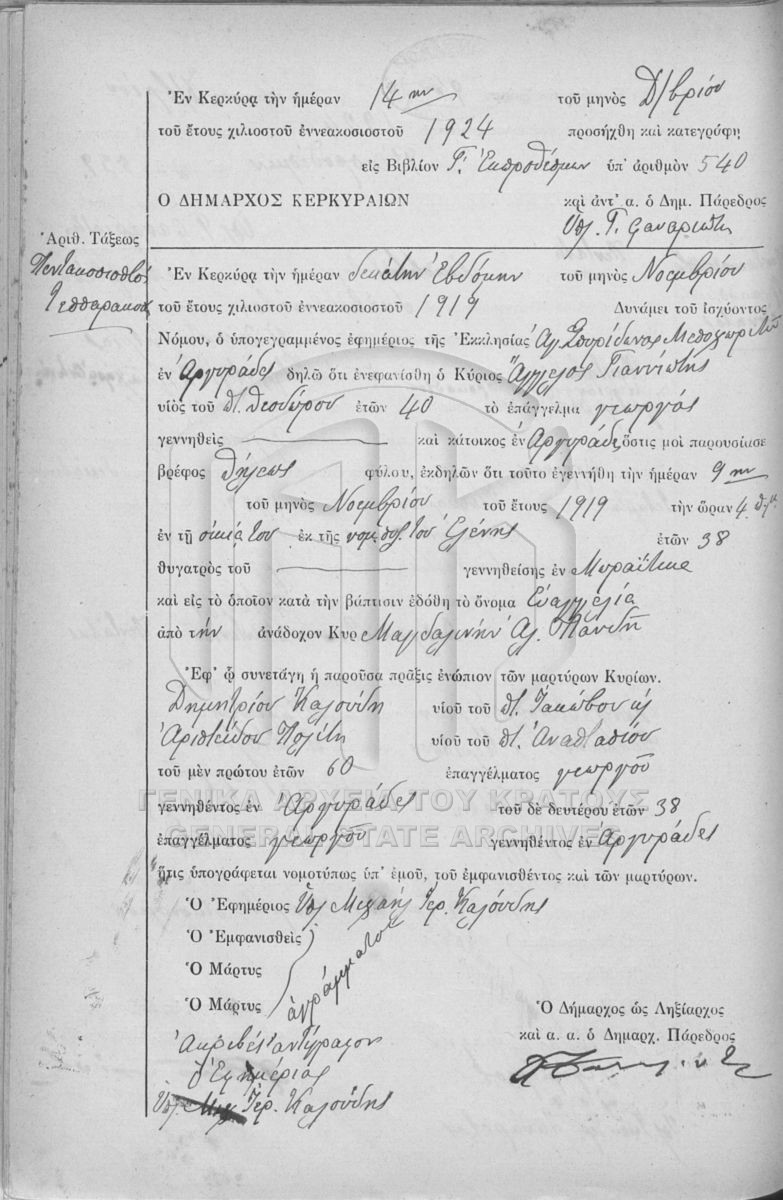 Ἐν Κερκύρᾳ τὴν ἡμέραν 14ην τοῦ μηνὸς Δ/βρίου
τοῦ ἔτους χιλιοστοῦ ἐννεακοσιοστοῦ 1924 προσήχθη καὶ κατεγράφη
εἰς Βιβλίον Γ. Ἐκπροθέσμων ὑπ' ἀριθμὸν 540
Ο ΔΗΜΑΡΧΟΣ ΚΕΡΚΥΡΑΙΩΝ καὶ ἀντ' α. ὁ Δημ. Πάρεδρος
Ὑπ. Γ.
Ἀριθ. Τάξεως
Πεντακοσιοστὸς
Τεσσαρακοστ
Ἐν Κερκύρᾳ τὴν ἡμέραν δεκάτην Ἑβδόμην τοῦ μηνὸς Νοεμβρίου
τοῦ ἔτους χιλιοστοῦ ἐννεακοσιοστοῦ 1919 Δυνάμει τοῦ ἰσχύοντος
Νόμου, ὁ ὑπογεγραμμένος ἐφημέριος τῆς Ἐκκλησίας Ἁγ. Σπυρίδωνος
ἐν Ἀργυράδες δηλῶ ὅτι ἐνεφανίσθη ὁ Κύριος Ἄγγελος Γιαννιώτης
υἱὸς τοῦ πτ. Θεοδώρου ἐτῶν 40 τὸ ἐπάγγελμα γεωργός
γεννηθεὶς καὶ κάτοικος ἐν Ἀργυράδες ὅστις μοὶ παρουσίασε
βρέφος θήλεως φύλου, ἐκδηλῶν ὅτι τοῦτο ἐγεννήθη τὴν ἡμέραν 9ην
τοῦ μηνὸς Νοεμβρίου τοῦ ἔτους 1919 τὴν ὥραν 4
ἐν τῇ οἰκίᾳ του ἐκ τῆς νομ. συζ. του Ἑλένης ἐτῶν 38
θυγατρὸς τοῦ γεννηθείσης ἐν Μωραΐτικα
καὶ εἰς τὸ ὁποῖον κατὰ τὴν βάπτισιν ἐδόθη τὸ ὄνομα Εὐαγγελία
ἀπὸ τὴν ἀνάδοχον Κυρ Μαγδαληνήν Ἀγ.
Ἐφ' ᾧ συνετάγη ἡ παροῦσα πρᾶξις ἐνώπιον τῶν μαρτύρων Κυρίων.
Δημητρίου Καλούδη υἱοῦ τοῦ πτ. Ἰακώβου
Ἀριστείδου Πολίτη υἱοῦ τοῦ πτ. Ἀναστασίου
τοῦ μὲν πρώτου ἐτῶν 60 ἐπαγγέλματος γεωργοῦ
γεννηθέντος ἐν Ἀργυράδες τοῦ δὲ δευτέρου ἐτῶν 38
ἐπαγγέλματος γεωργοῦ γεννηθέντος ἐν Ἀργυράδες
ἥτις ὑπογράφεται νομοτύπως ὑπ' ἐμοῦ, τοῦ ἐμφανισθέντος καὶ τῶν μαρτύρων.
Ὁ Ἐφημέριος Ὑπ. Μιχαήλ Ἱερ. Καλούδης
Ὁ Ἐμφανισθεὶς
Ὁ Μάρτυς
Ὁ Μάρτυς
ἀγράμματοι
Ὁ Δήμαρχος ὡς Ληξίαρχος
καὶ α. α. ὁ Δημαρχ. Πάρεδρος
Ἀκριβές ἀντίγραφον
ὁ Ἐφημέριος
Ὑπ. Μιχ Ἱερ. Καλούδης
ΓΕΝΙΚΑ ΑΡΧΕΙΑ ΤΟΥ ΚΡΑΤΟΥΣ
GENERAL STATE ARCHIVES